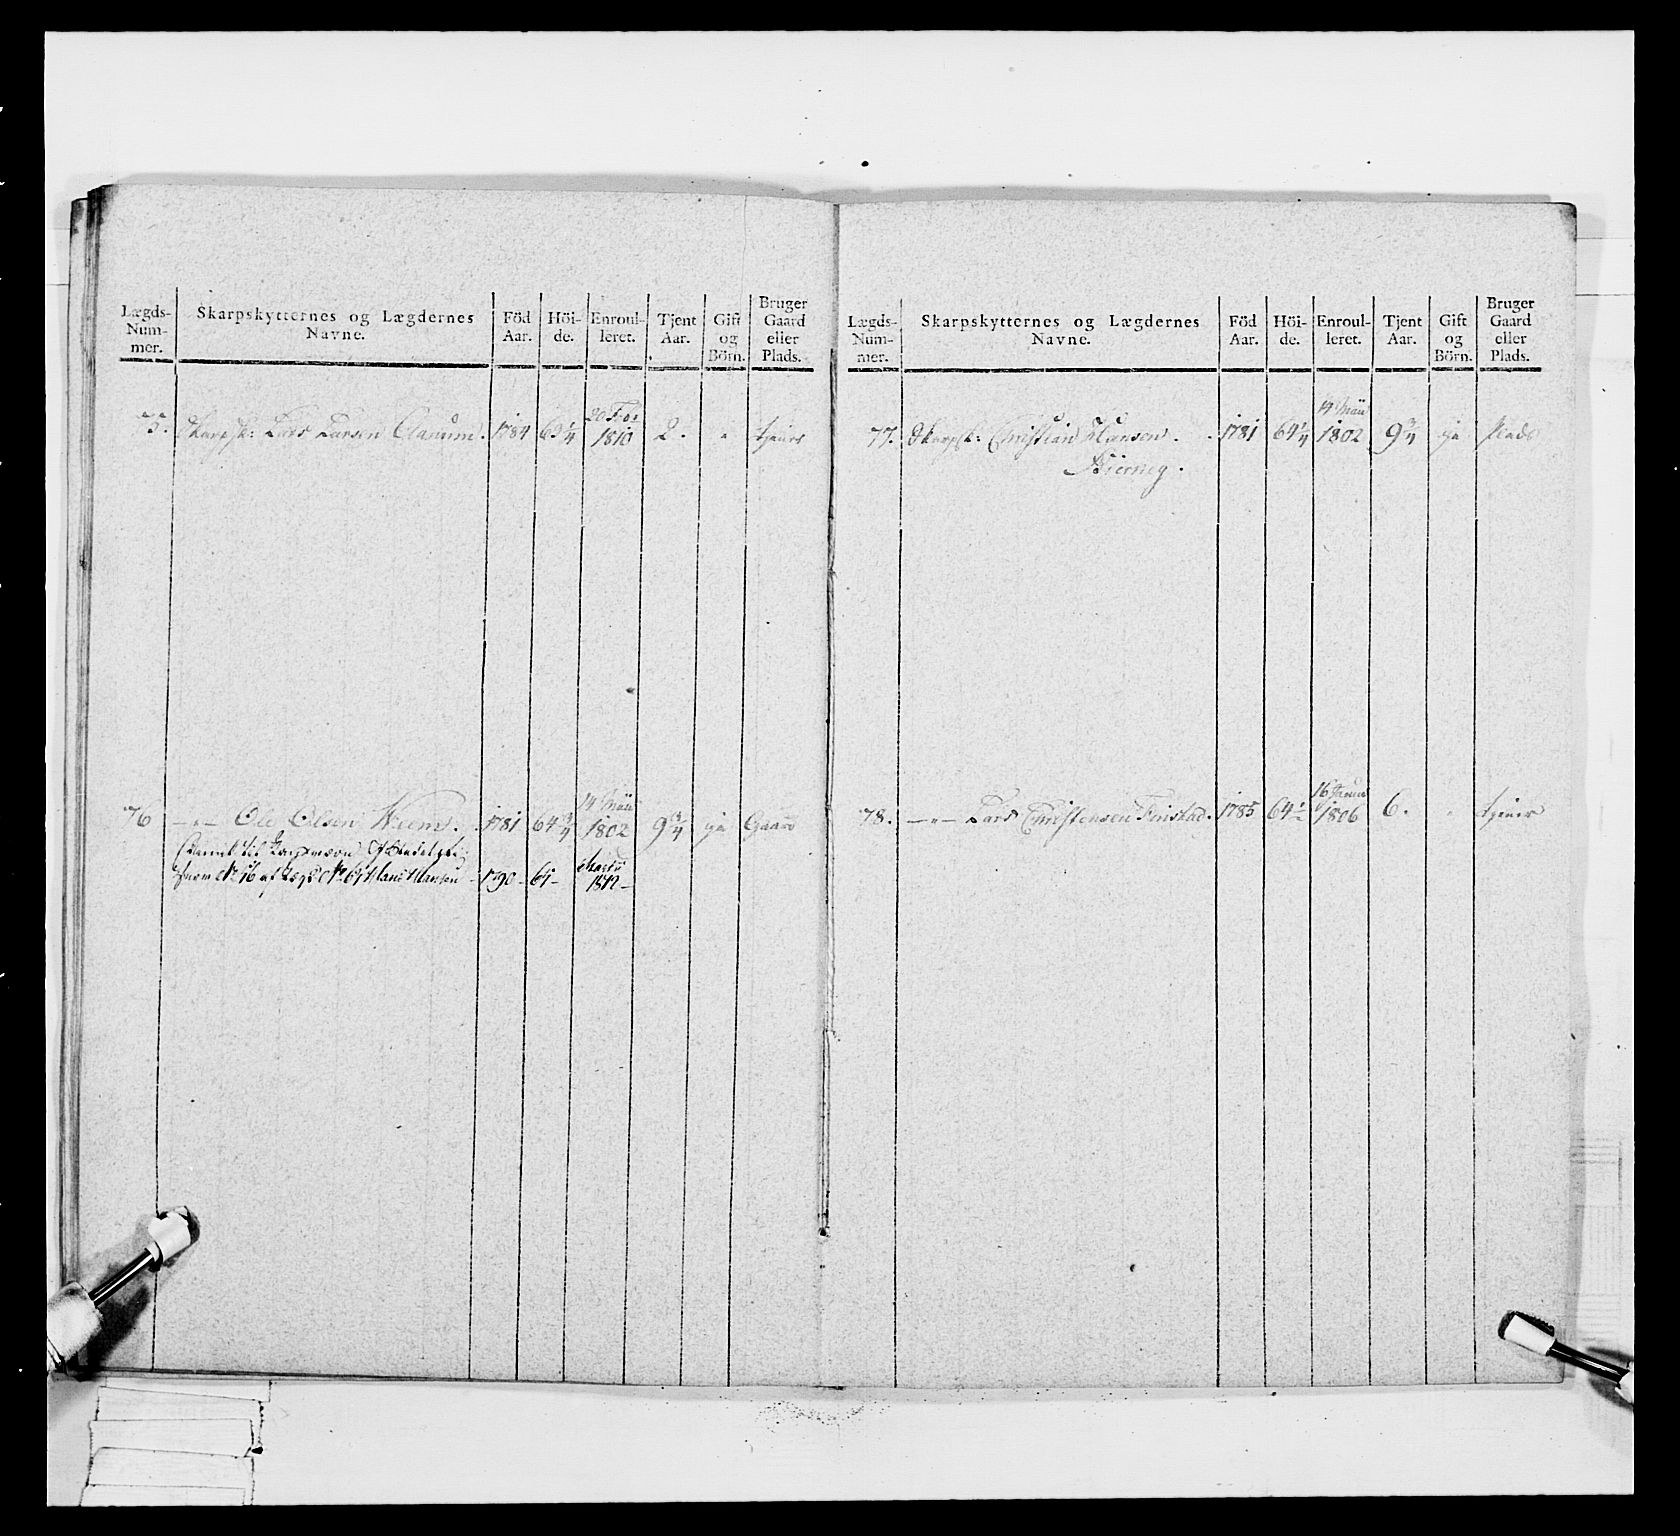 Lægds-
Num-
mer.
Skarpskytternes og Lægdernes
Navne.
Föd
Aar.
Höi-
de.
Enroul-
leret.
Tjent
Aar.
Gift
og
Börn.
Bruger
Gaard
eller
Plads.
75. Skarpsk: Lars Larsen 1784 63 1/4 20 Feb: 1810 2. " tjener
76 —"— Ole Olsen Weem. 1781 64 3/4 14 Mäii 1802 9 3/4 ja Gaard
No 76 af Lægd No 64 Hans Hansen - 1790 - 64 - Martii 1812 -
Lægds-
Num-
mer.
Skarpskytternes og Lægdernes
Navne.
Föd
Aar.
Höi-
de.
Enroul-
leret.
Tjent
Aar.
Gift
og
Börn.
Bruger
Gaard
eller
Plads.
77. Skarpsk: Christian Hansen. 1781 64 1/4 14 Mäii 1802 9 3/4 ja Plads
78. —"— Lars Christensen Finstad. 1785 64 16 Januar 1806 6. " tjener